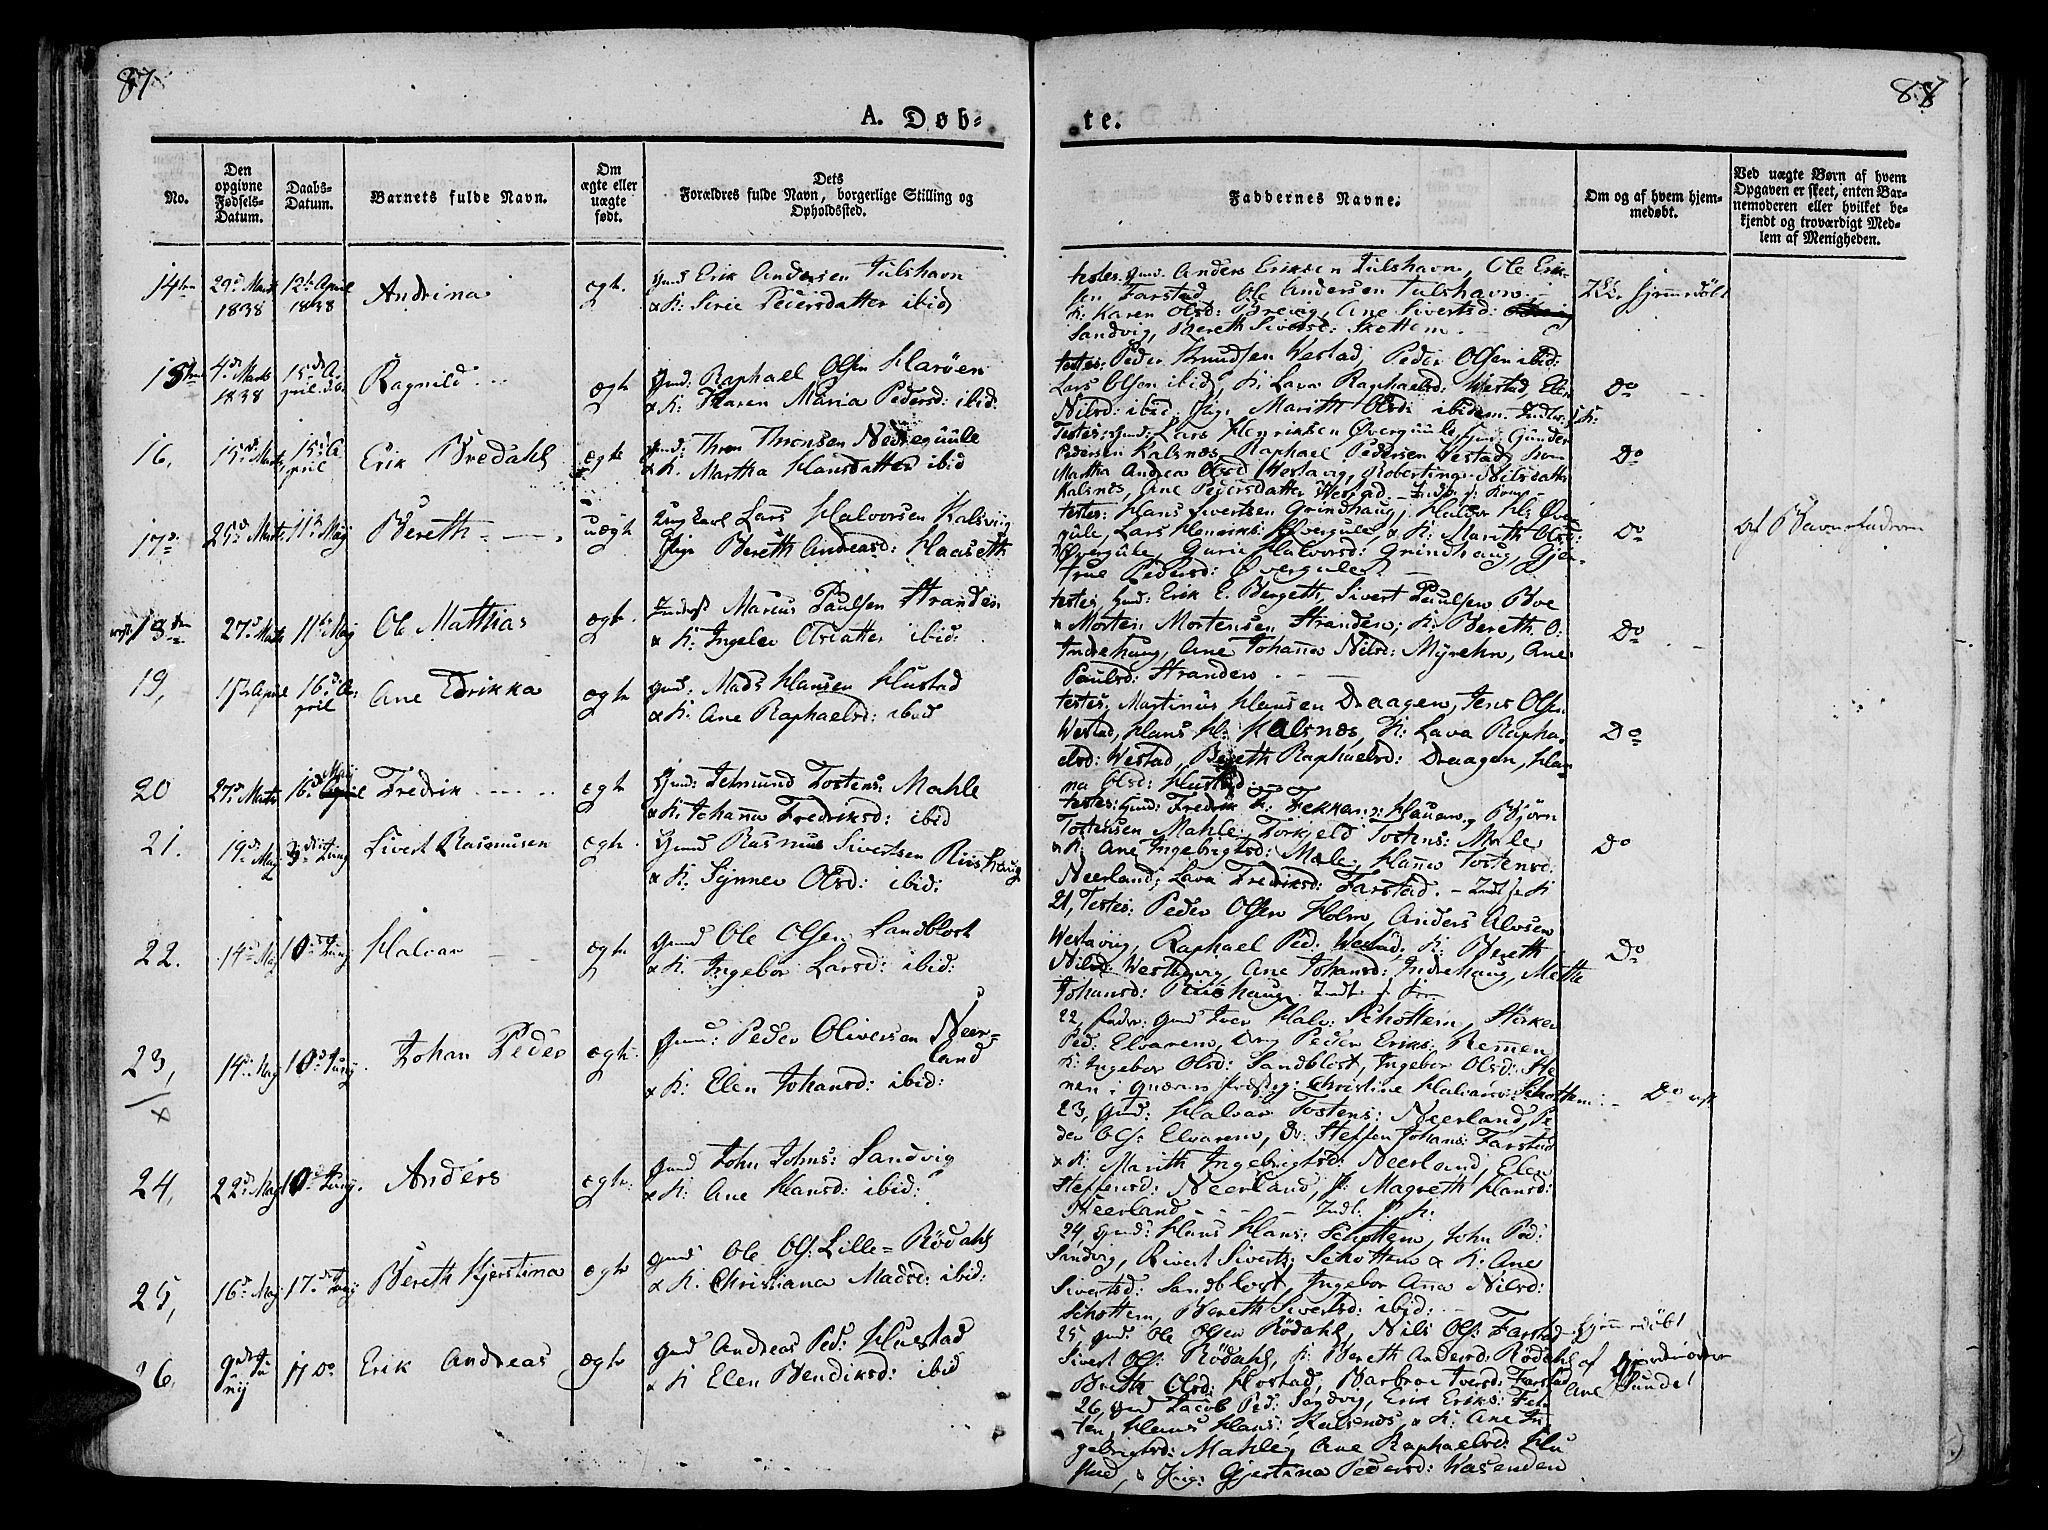 87
88
A. Døb-
te.
No.
Den opgivne Fødsels-Datum.
Daabs-Datum.
Barnets fulde Navn.
Om ægte eller uægte født.
Dets Forældres fulde Navn, borgerlige Stilling og Opholdssted.
Faddernes Navne.
Om og af hvem hjem-medøbt.
Ved uægte Børn af hvem Opgaven er skeet, enten Bar-nemoderen eller hvilket be-kjendt og troværdigt Med-lem af Menigheden.
14
1838
1838
Andrina
ægt.
Gmd Erik Andersen Julshavn
& K: Sirie Pedersdatter ibid
testes: Gmd. Anders Eriksen Julshavn, Ole Erik-
sen Farstad, Ole Andersen Julshavn
K: Karen Olsd: Breivig, Ane Sivertsd:
Sandvig, Bereth Sivertsd: Skottem.
15
4d Marts 1838
15d April
Ragnild
ægte
Gmd: Raphael Olsen Harøen
& K: Karen Maria Pedersd: ibid:
testes: Peder Knudsen Westad, Peder Olsen ibid:
Lars Olsen ibid, K: Lava Raphaelsd: Westad, Elen
Nilsd: ibid, Pige Marith Olsd: ibidem.
Do
16,
15d Marts
15d April
Erik Bredahl
ægte
Gmd: Thron Thronsen Nedregule
& K. Martha Hansdatter ibid
Testes: Gmd: Lars Henriksen Øvergule, Gmd: Gunder
Pedersen Kalsnæs, Raphael Pedersen Westad, Kone
Martha Andrea Olsd Westavig, Robertine Nilsdatter
Kalsnes, Ane Pedersdatter Westad.
Do
17
25d Marts
11 May
Bereth
uægte
Ung Karl Lars Halvorsen Kalsviig
Pige Bereth Andreasd: Haaseth
testes: Hans Sivertsen Grindhaug, Halvor H: Øver-
gule, Lars Henriks: Øvergule, & K: Marith Olsd:
Øvergule, Gurie Halvorsd: Grindhaug, Gjer-
true Pedersd: Øvergule.
Do
af Barnefaderen
18
27d Marts
11 May
Ole Mathias
ægte.
Marcus Paulsen Stranden
& K: Ingeler Olsdatter ibid:
testes, Gmd: Erik E. Bergeth, Sivert Paulsen Boe
& Morten Mortensen Stranden, K: Bereth O:
Indrehaug, Ane Johanna Nilsd: Myrehn, Ane
Paulsd: Stranden.
Do
19,
April
16d April
Ane Edrikka
ægte
Gmd: Mads Hansen Hustad
& K: Ane Raphaelsd: ibid
testes, Martinus Hansen Draagen, Jens Olsen
Westad, Hans H: Kalsnæs, K: Lava Rapha-
elsd: Westad, Bereth Raphaelsd: Draagen, Han-
na Olsd: Hustad.
Do
20
27d Marts
16d May
Fredrik
ægte
Gmd: Jetmund Tostens: Mahle
& K: Johanna Fredriksd: ibid
testes: Gmd: Fredrik Hauen, Bjørn
Tostensen Mahle, Torkjeld Tostens: Male
& K: Ane Ingebrigtsd: Male, Hanna Tostensd:
Neerland, Lava Fredriksd: Farstad.
Do
21.
19d May
Juny
Sivert Rasmusen
ægte.
Gmd Rasmus Sivertsen Riishaug
& K. Synnev Olsd: ibid:
21, Testes: Peder Olsen Holm, Anders Alvsen
Westavig, Raphael Ped: Westad, K: Bereth
Nilsd: Westavig, Ane Johansd: Indrehaug, Metha
Johansd: Riishaug.
Do
22.
14d May
10d Juny
Halvar
ægte
Gmd Ole Olsen Sandblost
& K. Ingebor Larsd: ibid:
22, Gmd Iver Halv: Schottem, Størker
Ped: Elvarem, Peder Eriks: Remen
K: Ingebor Olsd: Sandblost, Ingebor Olsd:
Christine Halvars: Schottem
Do
23,
14d May
10d Juny
Johan Peder
ægte
Gmd: Peder Oliversen Neer-
land
& K: Elen Johansd: ibid:
23, Gmd: Halvar Tostens: Neerland, Pe-
der Ols: Elvarem, Do: Steffen Johans: Farstad
& K: Marith Ingebrigtsd: Neerland, Elen
Steffensd: Neerland, P: Magreth Hansd:
Neerland
24,
22d May
10d Juny.
Anders
ægte.
Gmd John Johns: Sandvig
& K: Ane Hansd: ibid:
24, Gmd: Hans Hans: Schottem, John Ped:
Sandvig, Sivert Siverts: Schottem & K: Ane
Sivertsd: Sandblost, Ingebor Anna Nilsd:
Schottem, Bereth Sivertsd: ibid:
25,
16d May
17d Juny
Bereth Kjerstina
ægte
Gmd Ole Ols: Lille-Rödahl
& K. Christiana Madsd: ibid:
25, Gmd: Ole Olsen Rödahl, Nils Ols: Farstad
Sivert Ols: Rödahl, K: Bereth Andersd: Rödahl
Breth Olsd: Hostad, Barbroe Iversd: Farstad
Hjemmedöbt
af Gjordmoderen
Ane Sundet
26,
Juny
17 do
Erik Andreas
ægte
Gmd Andreas Ped: Hustad
& K Elen Bendiksd: ibid
26, Gmd Jacob Ped: Sandvig, Erik Eriks:
Hans Hans: Kalsnes, & K: Ane In-
gebrigtsd: Mahle, Ane Raphaelsd: Hu-
stad, & Pige: Gjertina Pedersd: Wasenden